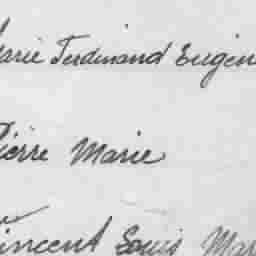 arie Ferdinand Eugen
Pierre Marie
Vincent Louis Mar